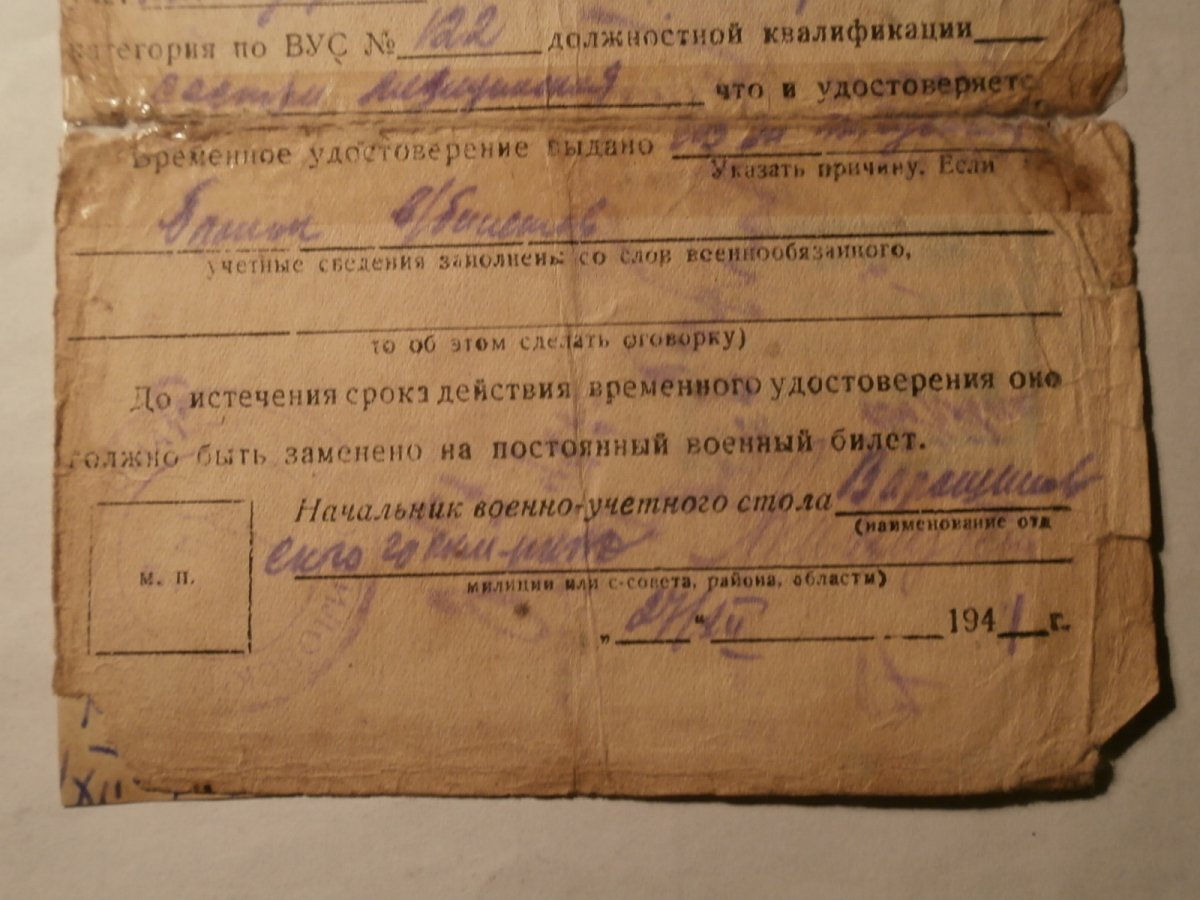 категория по ВУС № 122 должностной квалификации
сестра медицинская что и удостоверяетс
Временное удостоверение выдано из за
Указать причину. Если
в/билетов
учетные сведения заполнены со слов военнообязанного,
то об этом сделать оговорку)
До истечения срока действия временного удостоверения оно
должно быть заменено на постоянный военный билет.
Начальник военно-учетного стола
(наименование отд
милиции или с-совета, района, области)
М. П.
„27/XII“ 1941 г.
XII